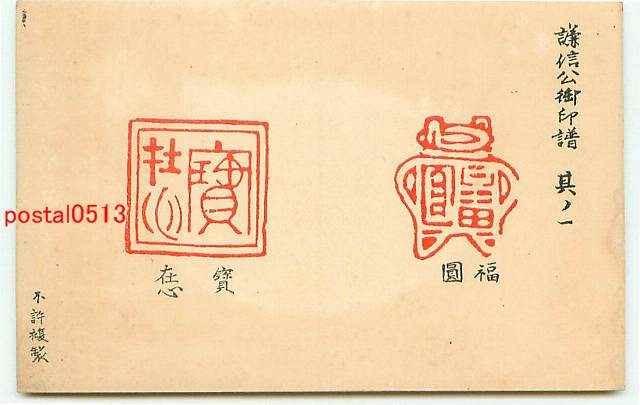 謙信公御印譜 其ノ一
福
圓
寳
在心
不許複製
postal0513